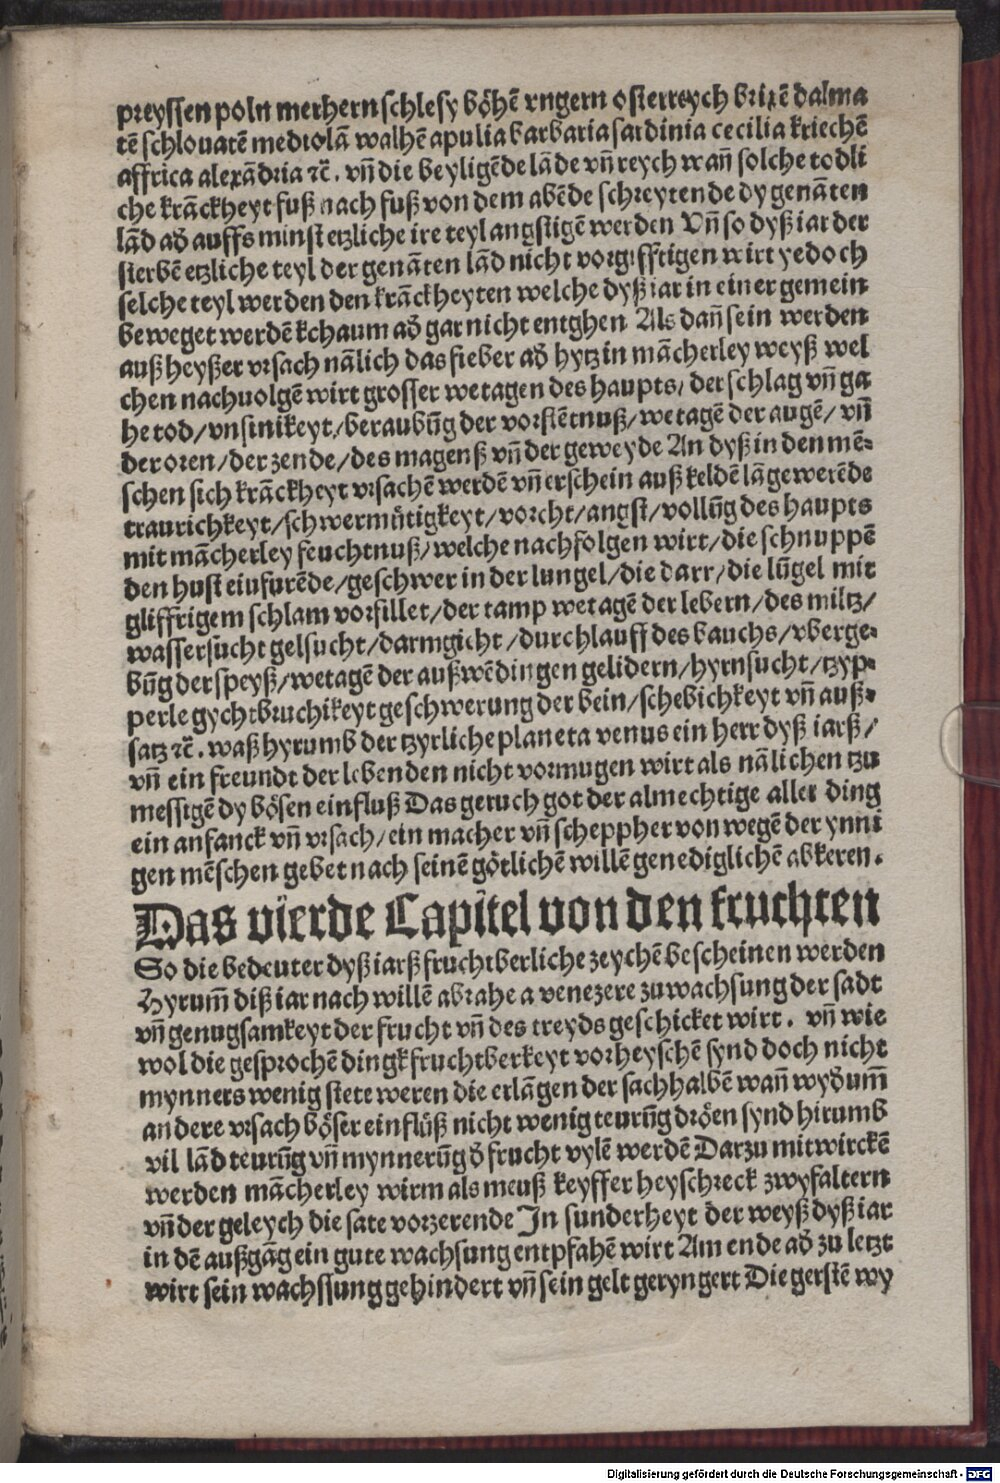 preyssen poln merhern schlesy böhē vngern osterreych brixē dalma
tē schlouatē mediolā walhē apulia barbaria sardinia cecilia kriechē
affrica alexādria ꝛč. vn̄ die beyligēde lāde vn̄ reych wan̄ solche todli
che krāckheyt fuß nach fuß von dem abēde schreytende dy genāten
lād ad̄ auffs minst etzliche ire teyl angstigē werden Vn̄ so dyß iar der
sterbē etzliche teyl der genāten lād nicht vorgifftigen wirt yedoch
selche teyl werden den krāckheyten welche dyß iar in einer gemein
beweget werdē kchaum ad̄ gar nicht entghen Als dan̄ sein werden
auß heyßer vrsach nālich das fieber ad̄ hytz in mācherley weyß wel
chen nachuolgē wirt grosser wetagen des haupts/ der schlag vn̄ ga
he tod/ vnsinikeyt/ beraubūg der vorstētnuß/ wetagē der augē/ vn̄
der oren/ der zende/ des magenß vn̄ der geweyde An dyß in den mē-
schen sich krāckheyt vrsachē werdē vn̄ erschein auß keldē lāgewerēde
traurichkeyt/ schwermütigkeyt/ vorcht/ angst/ vollūg des haupts
mit mācherley feuchtnuß/ welche nachfolgen wirt/ die schnuppē
den hust einfurēde/ geschwer in der lungel/ die darr/ die lūgel mit
gliffrigem schlam vorfillet/ der tamp wetagē der lebern/ des miltz/
wassersucht gelsucht/ darmgicht/ durchlauff des bauchs/ vberge-
būg der speyß/ wetagē der außwēdingen gelidern/ hyrnsucht/ tzyp-
perle gychtbruchikeyt geschwerung der bein/ schebichkeyt vn̄ auß-
satz ꝛč. waß hyrumb der tzyrliche planeta venus ein herr dyß iarß/
vn̄ ein freundt der lebenden nicht vormugen wirt als nālichen tzu
messigē dy bösen einfluß Das geruch got der almechtige aller ding
ein anfanck vn̄ vrsach/ ein macher vn̄ scheppher von wegē der ynni
gen mēschen gebet nach seinē götlichē willē genediglichē abkeren.
Das vierde Capitel von den fruchten
So die bedeuter dyß iarß fruchtberliche zeychē bescheinen werden
Hyrum̄ diß iar nach willē abrahe a venezere zu wachsung der sadt
vn̄ genugsamkeyt der frucht vn̄ des treyds geschicket wirt. vn̄ wie
wol die gesprochē dingk fruchtberkeyt vorheyschē synd doch nicht
mynners wenig stete weren die erlāgen der sach halbē wan̄ wyd̄um̄
andere vrsach böser einflüß nicht wenig teurūg dröen synd hirumb
vil lād teurūg vn̄ mynnerūg d̄ frucht vylē werdē Darzu mitwirckē
werden mācherley wirm als meuß keyffer heyschreck zwyfaltern
vn̄ der geleych die sate vorzerende In sunderheyt der weyß dyß iar
in dē außgāg ein gute wachsung entpfahē wirt Am ende ad̄ zu letzt
wirt sein wachssung gehindert vn̄ sein gelt geryngert Die gerstē wy
Digitalisierung gefördert durch die Deutsche Forschungsgemeinschaft - DFG